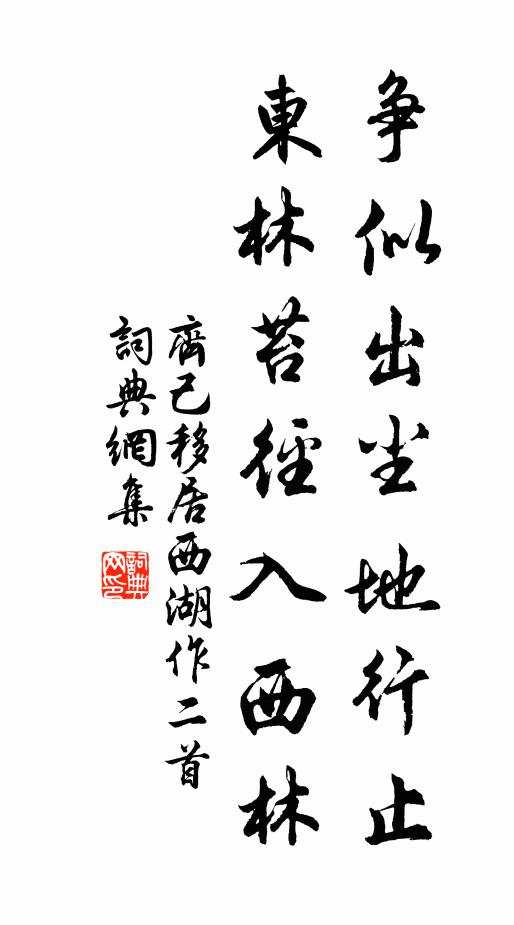 争似出尘地行止
東林苔徑入西林
齊己移居西湖作二首
詞典網集
詞典網印